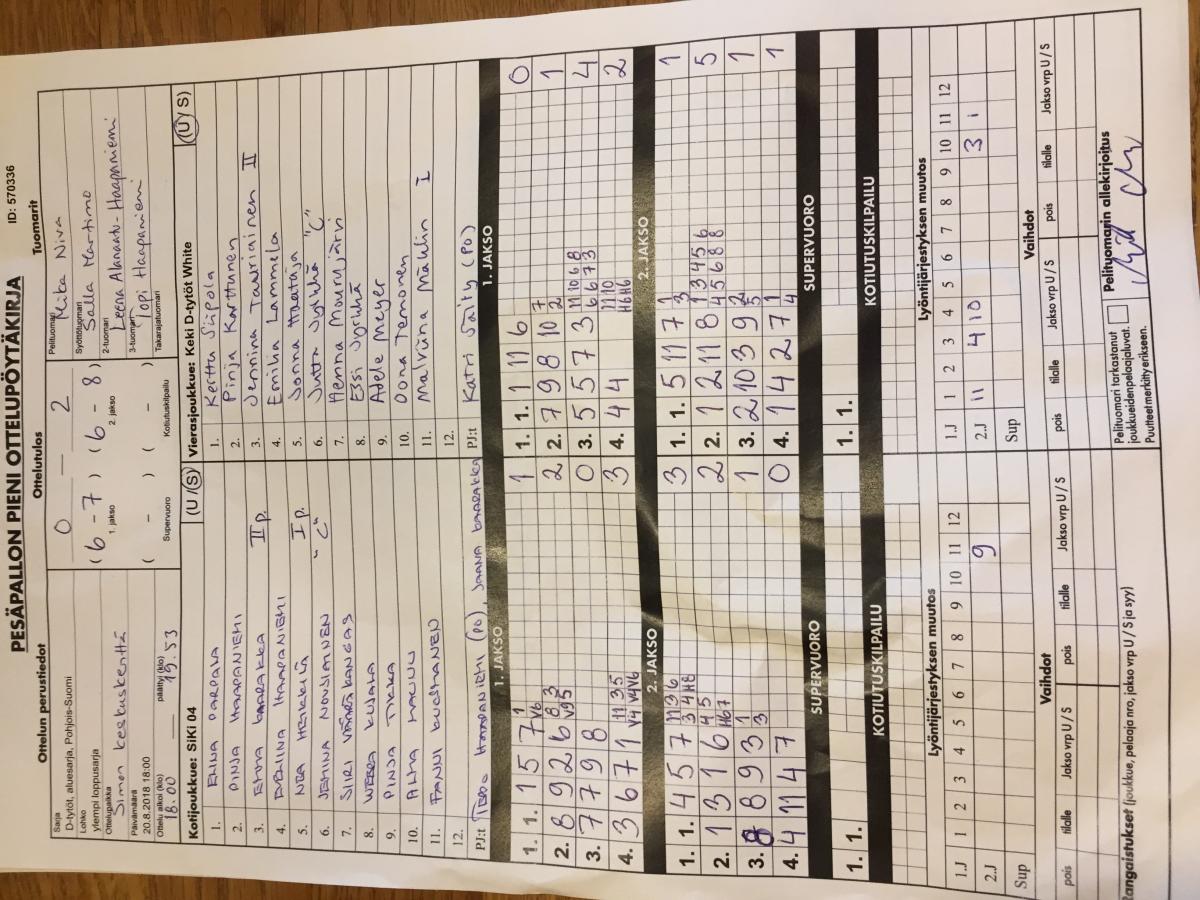 PESÄPALLON PIENI OTTELUPÖYTÄKIRJA
ID: 570336
Ottelun perustiedot
Ottelutulos
Tuomarit
Sarja
D-tytöt, aluesarja, Pohjois-Suomi
Lohko
ylempi loppusarja
Ottelupaikka
Simon keskuskenttä
Päivämäärä
20.8.2018 18:00
Ottelu alkoi (klo)
18.00
päättyi (klo)
19.53
0 — 2
( 6 - 7 ) ( 6 - 8 )
1. jakso 2. jakso
( - ) ( - )
Supervuoro Kotiutuskilpailu
Pelituomari
Mika Niva
Syöttötuomari
Salla Martimo
2-tuomari
Leena Alanaatu-Haapaniemi
3-tuomari
Topi Haapaniemi
Takarajatuomari
Kotijoukkue: SiKi 04 (U / S)
1. ELINA PARPALA
2. PINJA HAAPANIEMI
3. EMMA BAARAKKA II p.
4. EVELIINA HAAPANIEMI
5. NEA HEIKKILÄ I p.
6. JEMINA NOUSIAINEN "C"
7. SIRI VÄÄRÄKANGAS
8. WEERA KUJALA
9. PINJA TIKKA
10. ALMA
11. FANNI
12.
PJ:t TERO HAAPANIEMI (PO), JAANA BAARAKKA
Vierasjoukkue: Keki D-tytöt White (U / S)
1. Kerttu Siipola
2. Pinja Karttunen
3. Jennina Tauriainen II
4. Emilia Lammela
5. Sonna Haataja
6. Jutta Jyrkkä "C"
7. Henna Mourujärvi
8. Essi Jyrkkä
9. Adele Meyer
10. Oona Temonen
11. Malviina Mählin I
12.
PJ:t Katri Säily (PO)
1. JAKSO
1. 1. 1 5 7 1 V6 1
2. 8 9 2 6 8 3 V9 5 2
3. 7 7 9 8 0
4. 3 6 7 1 11 3 5 V4 V4 V6 3
2. JAKSO
1. 1. 4 5 7 11 3 6 3 4 H8 3
2. 1 3 1 6 4 5 H6 7 2
3. 8 8 9 3 1 3 1
4. 4 11 4 7 0
SUPERVUORO
1. 1.
KOTIUTUSKILPAILU
1. JAKSO
1. 1. 1 11 6 0
2. 7 9 8 10 7 2 1
3. 5 5 7 3 11 10 6 8 6 6 7 3 4
4. 4 4 11 10 H6 H6 2
2. JAKSO
1. 1. 5 11 7 1 3 1
2. 1 2 11 8 1 3 4 5 6 4 5 6 8 8 5
3. 2 10 3 9 2 5 1
4. 1 4 2 7 1 4 1
SUPERVUORO
1. 1.
KOTIUTUSKILPAILU
Lyöntijärjestyksen muutos
1.J 1 2 3 4 5 6 7 8 9 10 11 12
2.J 9
Sup
Vaihdot
pois tilalle Jakso vrp U / S pois tilalle Jakso vrp U / S
Lyöntijärjestyksen muutos
1.J 1 2 3 4 5 6 7 8 9 10 11 12
2.J 11 4 10 3 1
Sup
Vaihdot
pois tilalle Jakso vrp U / S pois tilalle Jakso vrp U / S
Rangaistukset (joukkue, pelaaja nro, jakso vrp U / S ja syy)
Pelituomari tarkastanut
joukkueidenpelaajaluvat.
Puutteet merkity erikseen.
Pelituomarin allekirjoitus